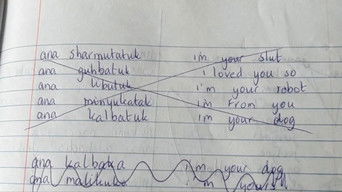 ana sharmutatuk i'm your slut
ana guhbatuk i loved you so
ana ubutuk i'm your robot
ana minyukatak im from you
ana kalbatuk im your dog
ana kalbatka i'm your dog
ana i'm yours